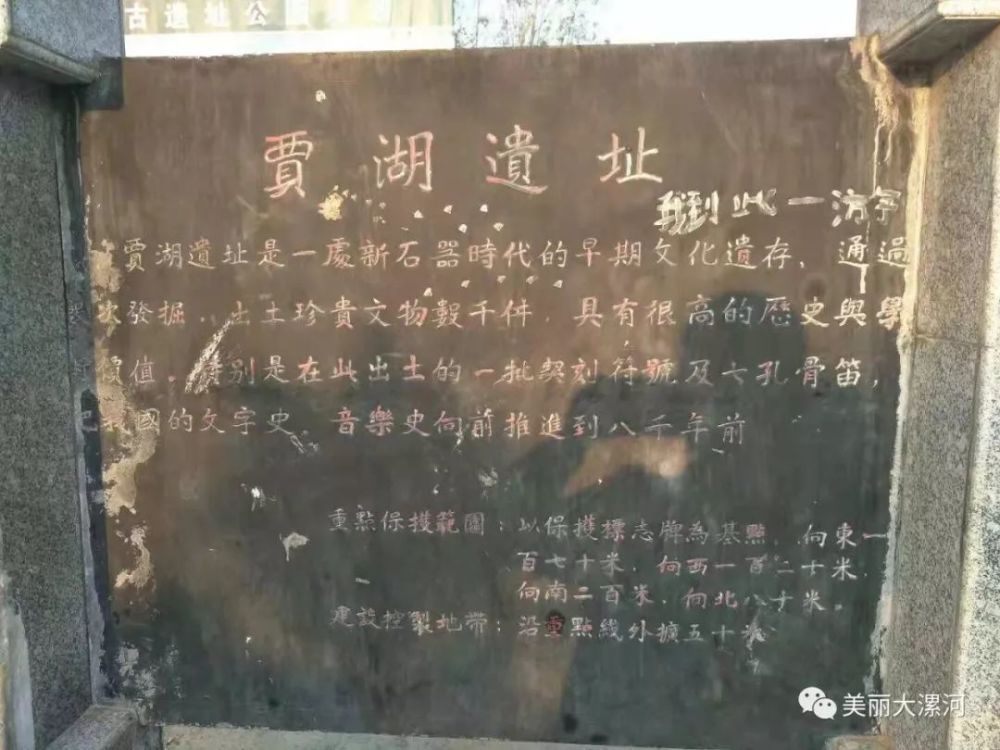 古遗址公園
賈湖遺址
到此一
賈湖遺址是一處新石器時代的早期文化遺存，通過
次發掘，出土珍貴文物數千件，具有很高的歷史與學
價值。特别是在此出土的一批契刻符號及七孔骨笛，
把我國的文字史、音樂史向前推進到八千年前
重點保護範圍：以保護標志牌為基點，向東一
百七十米，向西一百二十米，
向南二百米，向北八十米。
建設控製地帶：沿重點綫外擴五十米
美丽大漯河